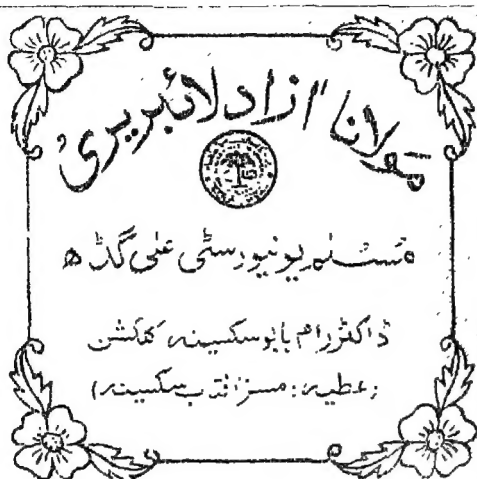 مولانا آزاد لائبریری
مسلم یونیورسٹی علی گڈھ
ڈاکٹر رام بابو سکسینہ کلکشن
(عطیہ: مسز سکسینہ)